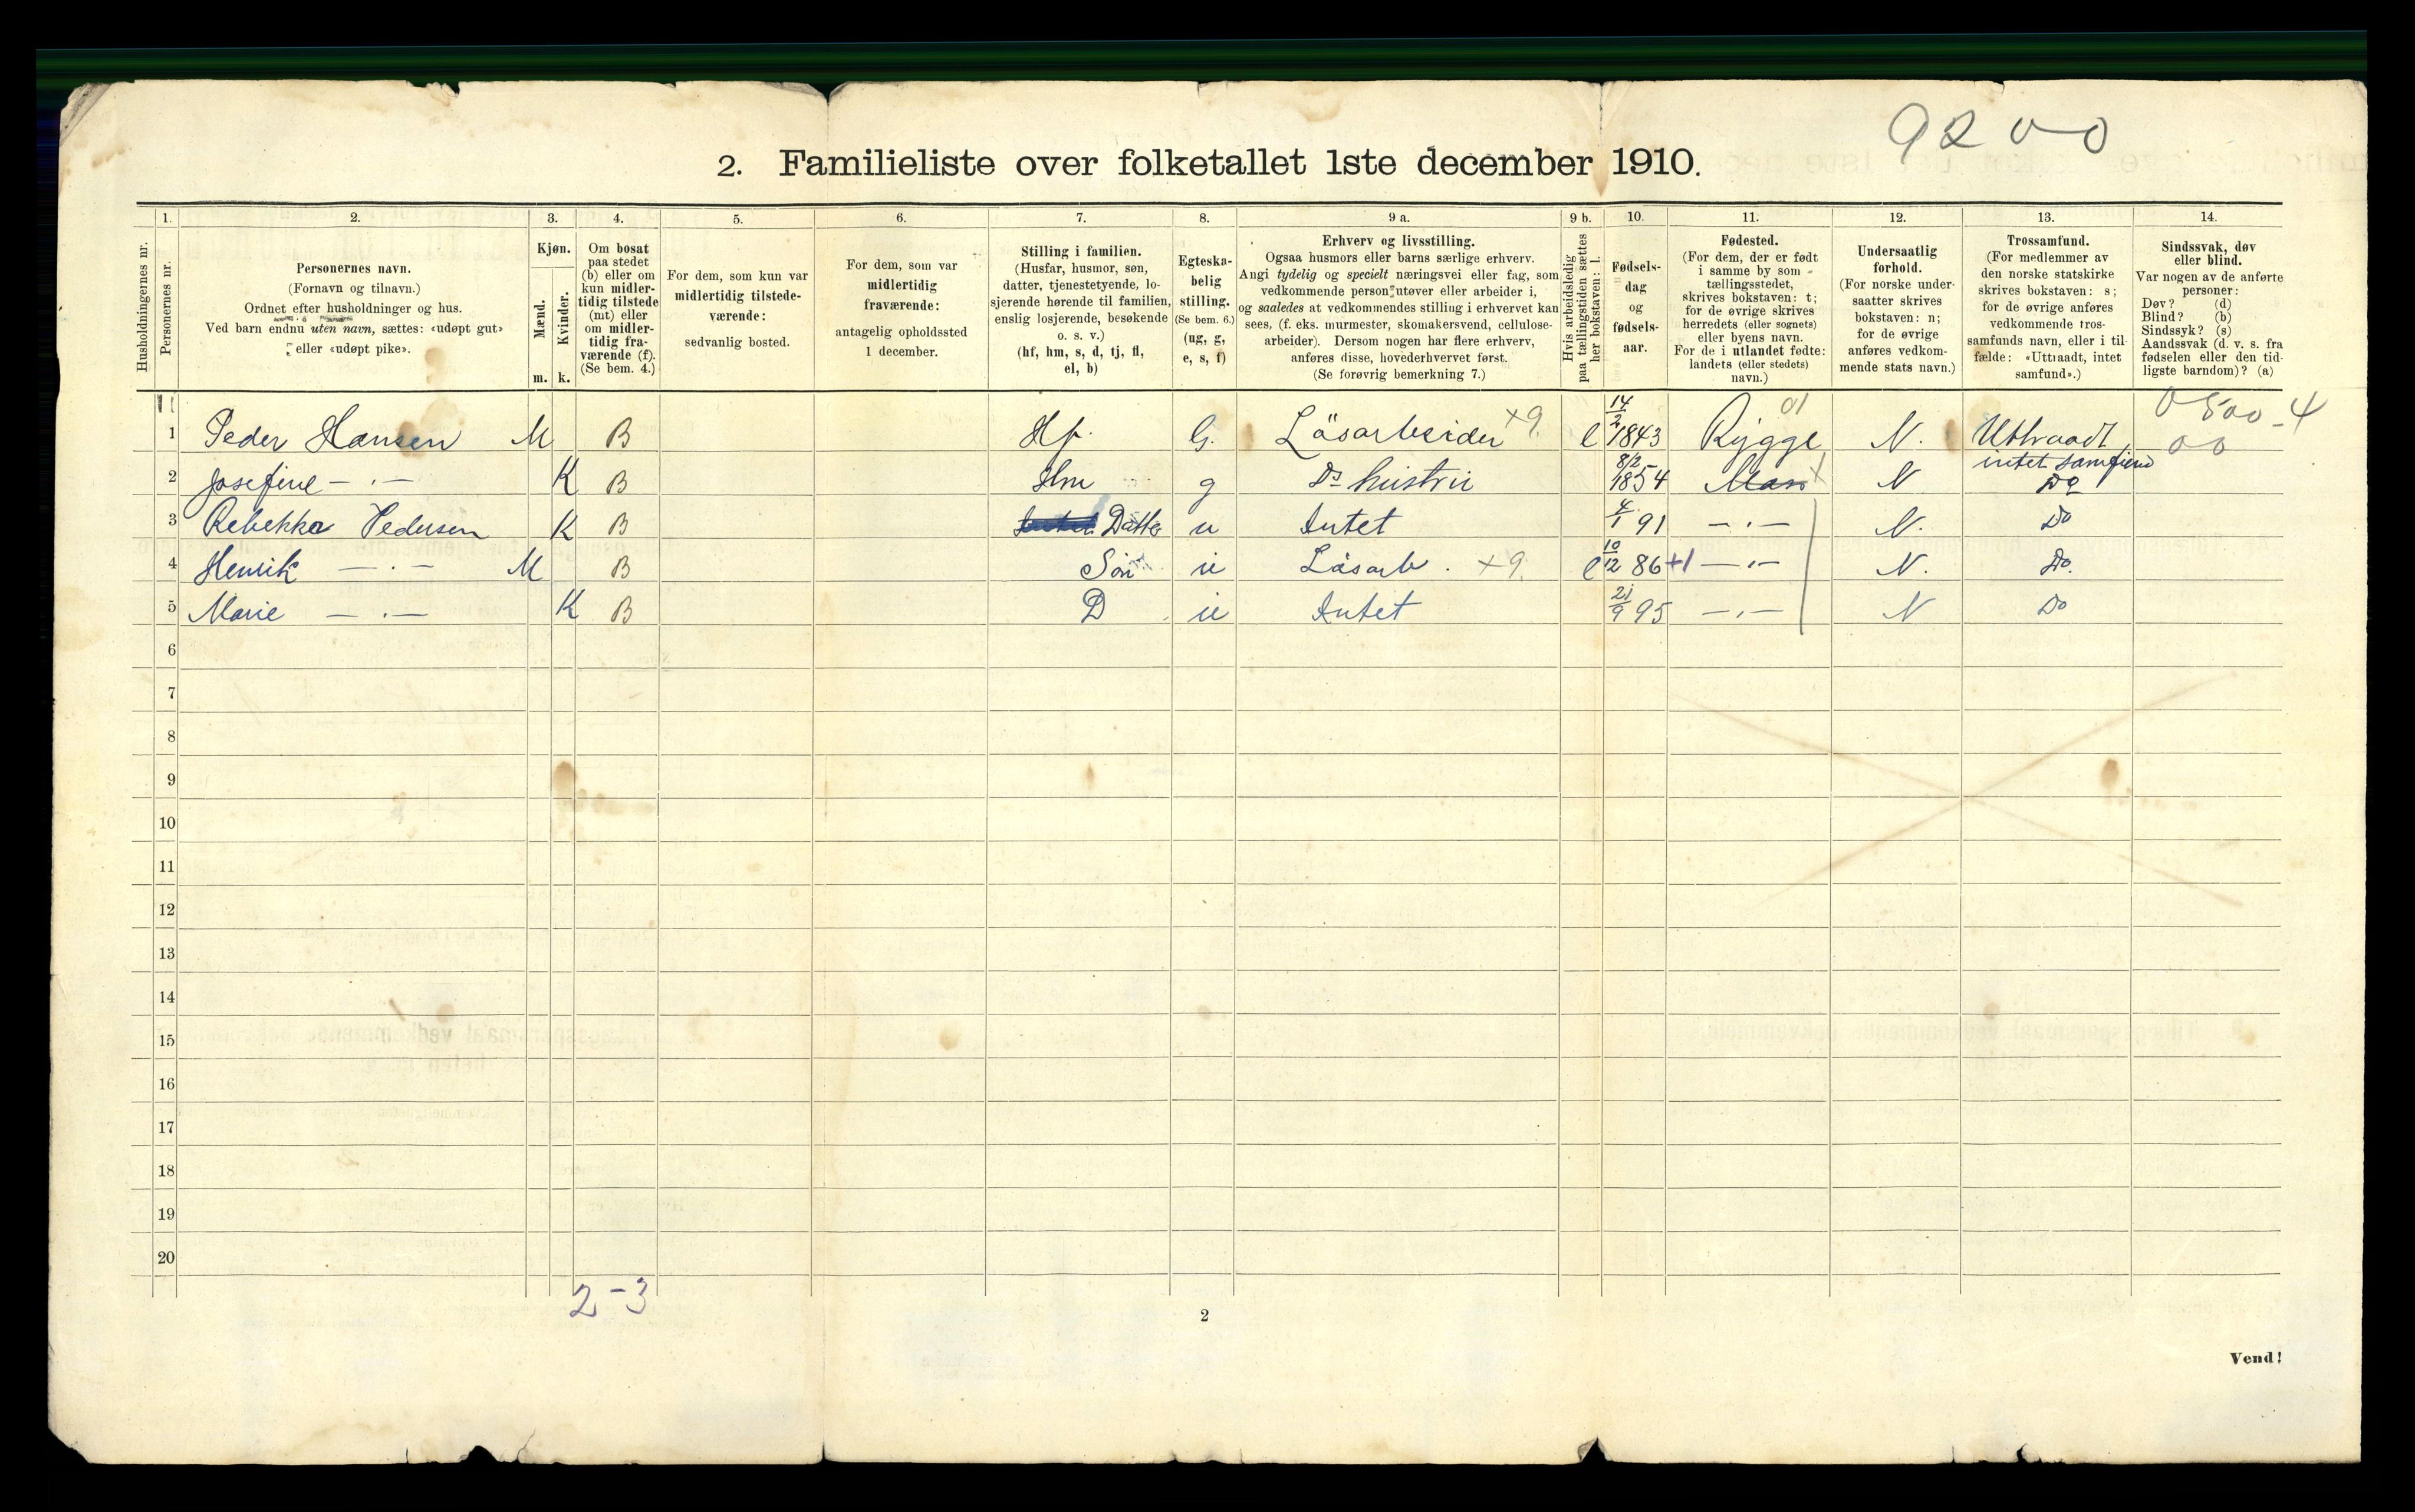 9200
2. Familieliste over folketallet 1ste december 1910.
1. 2. 3. 4. 5. 6. 7. 8. 9 a. 9 b. 10. 11. 12. 13. 14.
Husholdningernes nr.
Personernes nr.
Personernes navn.
(Fornavn og tilnavn.)
Ordnet efter husholdninger og hus.
Ved barn endnu uten navn, sættes: «udøpt gut»
eller «udøpt pike».
Kjøn.
Mænd.
m.
Kvinder.
k.
Om bosat
paa stedet
(b) eller om
kun midler-
tidig tilstede
(mt) eller
om midler-
tidig fra-
værende (f).
(Se bem. 4.)
For dem, som kun var
midlertidig tilstede-
værende:
sedvanlig bosted.
For dem, som var
midlertidig
fraværende:
antagelig opholdssted
1 december.
Stilling i familien.
(Husfar, husmor, søn,
datter, tjenestetyende, lo-
sjerende hørende til familien,
enslig losjerende, besøkende
o. s. v.)
(hf, hm, s, d, tj, fl,
el, b)
Egteska-
belig
stilling.
(Se bem. 6.)
(ug, g,
e, s, f)
Erhverv og livsstilling.
Ogsaa husmors eller barns særlige erhverv.
Angi tydelig og specielt næringsvei eller fag, som
vedkommende person utøver eller arbeider i,
og saaledes at vedkommendes stilling i erhvervet kan
sees, (f. eks. murmester, skomakersvend, cellulose-
arbeider). Dersom nogen har flere erhverv,
anføres disse, hovederhvervet først.
(Se forøvrig bemerkning 7.)
Hvis arbeidsledig
paa tællingstiden sættes
her bokstaven: l.
Fødsels-
dag
og
fødsels-
aar.
Fødested.
(For dem, der er født
i samme by som
tællingsstedet,
skrives bokstaven: t;
for de øvrige skrives
herredets (eller sognets)
eller byens navn.
For de i utlandet fødte:
landets (eller stedets)
navn.)
Undersaatlig
forhold.
(For norske under-
saatter skrives
bokstaven: n;
for de øvrige
anføres vedkom-
mende stats navn.)
Trossamfund.
(For medlemmer av
den norske statskirke
skrives bokstaven: s;
for de øvrige anføres
vedkommende tros-
samfunds navn, eller i til
fælde: «Uttraadt, intet
samfund».)
Sindssvak, døv
eller blind.
Var nogen av de anførte
personer:
Døv? (d)
Blind? (b)
Sindssyk? (s)
Aandssvak (d. v. s. fra
fødselen eller den tid-
ligste barndom)? (a)
1 Peder Hansen M B Hf. G. Läsarbeider +9. l 14/2 1843 Rygge 01 N. Uttraadt, intet samfund 0500-4 00
2 Josefine — " — K B Hm g Ds hustru 8/2 1854 Moss N Do
3 Rebekka Pedersen K B Datter u Intet 4/1 91 — " — N. Do
4 Henrik — " — M B Sön u Läsarb. +9. l 10/12 86 +1 — " — N. Do.
5 Marie — " — K B D u Intet 21/9 95 — " — N Do
6
7
8
9
10
11
12
13
14
15
16
17
18
19
20
2-3
2
Vend!